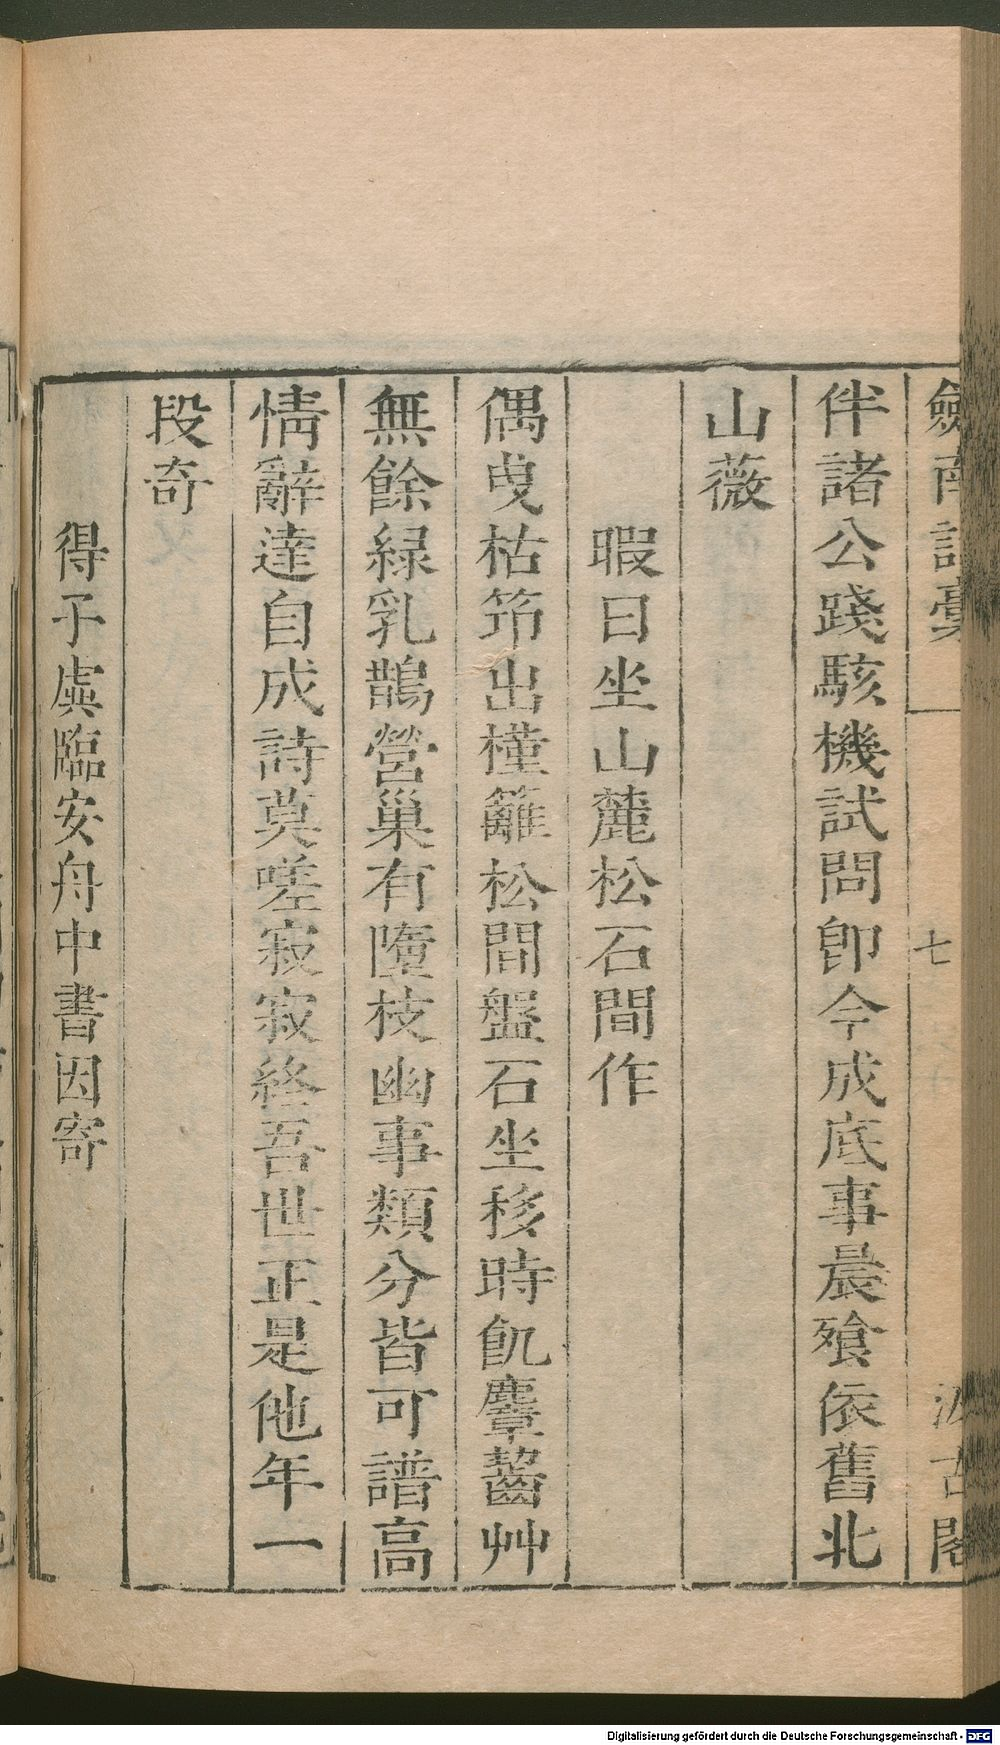 劍南詩稾
七
汲古閣
伴諸公踐駭機試問卽今成底事晨飱依舊北
山薇
暇日坐山麓松石間作
偶曳枯筇出槿籬松間盤石坐移時飢麞齧艸
無餘緑乳鵲營巢有墮枝幽事類分皆可譜高
情辭達自成詩莫嗟寂寂終吾世正是他年一
段奇
得子虡臨安舟中書因寄
Digitalisierung gefördert durch die Deutsche Forschungsgemeinschaft - DFG